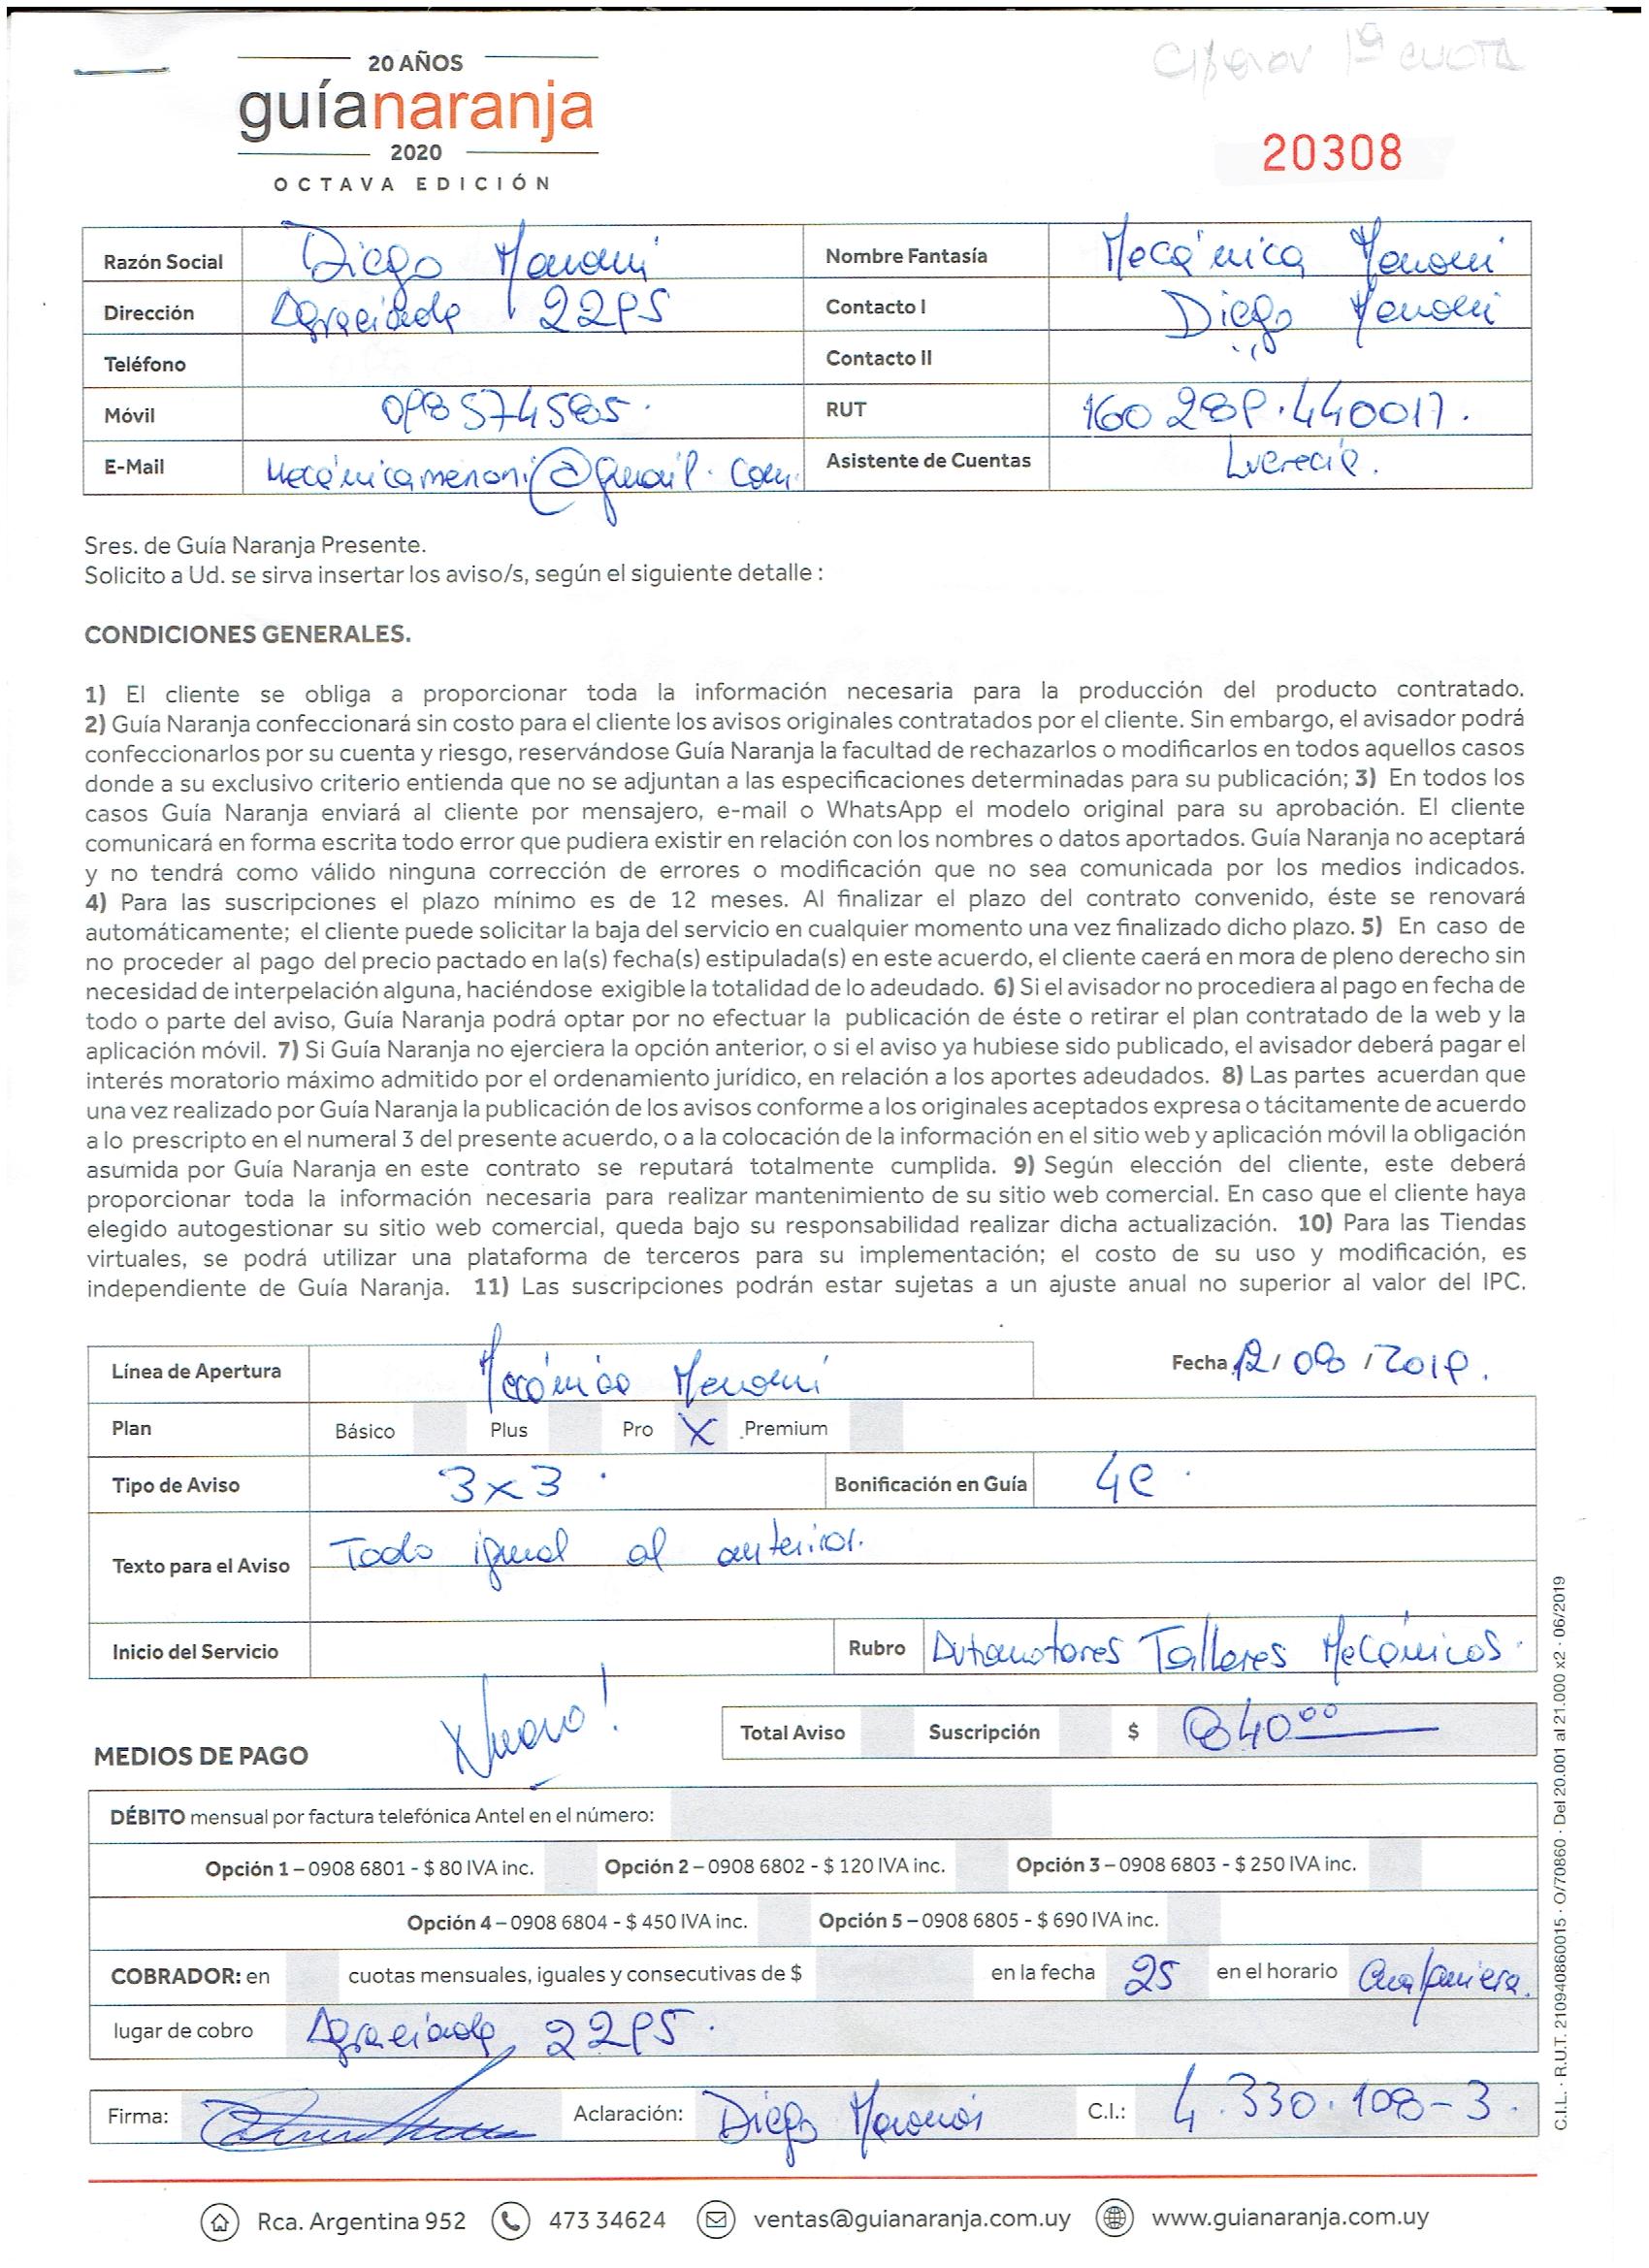 20 AÑOS
guíanaranja
2020
OCTAVA EDICIÓN
1ª CUOTA
20308
Razón Social Diego Menoni Nombre Fantasía Mecánica Menoni
Dirección Agraciada 2295 Contacto I Diego Menoni
Teléfono Contacto II
Móvil 098574585. RUT 160 289.440017.
E-Mail mecanicamenoni@gmail.com Asistente de Cuentas Lucrecia.
Sres. de Guía Naranja Presente.
Solicito a Ud. se sirva insertar los aviso/s, según el siguiente detalle :
CONDICIONES GENERALES.
1) El cliente se obliga a proporcionar toda la información necesaria para la producción del producto contratado.
2) Guía Naranja confeccionará sin costo para el cliente los avisos originales contratados por el cliente. Sin embargo, el avisador podrá
confeccionarlos por su cuenta y riesgo, reservándose Guía Naranja la facultad de rechazarlos o modificarlos en todos aquellos casos
donde a su exclusivo criterio entienda que no se adjuntan a las especificaciones determinadas para su publicación; 3) En todos los
casos Guía Naranja enviará al cliente por mensajero, e-mail o WhatsApp el modelo original para su aprobación. El cliente
comunicará en forma escrita todo error que pudiera existir en relación con los nombres o datos aportados. Guía Naranja no aceptará
y no tendrá como válido ninguna corrección de errores o modificación que no sea comunicada por los medios indicados.
4) Para las suscripciones el plazo mínimo es de 12 meses. Al finalizar el plazo del contrato convenido, éste se renovará
automáticamente; el cliente puede solicitar la baja del servicio en cualquier momento una vez finalizado dicho plazo. 5) En caso de
no proceder al pago del precio pactado en la(s) fecha(s) estipulada(s) en este acuerdo, el cliente caerá en mora de pleno derecho sin
necesidad de interpelación alguna, haciéndose exigible la totalidad de lo adeudado. 6) Si el avisador no procediera al pago en fecha de
todo o parte del aviso, Guía Naranja podrá optar por no efectuar la publicación de éste o retirar el plan contratado de la web y la
aplicación móvil. 7) Si Guía Naranja no ejerciera la opción anterior, o si el aviso ya hubiese sido publicado, el avisador deberá pagar el
interés moratorio máximo admitido por el ordenamiento jurídico, en relación a los aportes adeudados. 8) Las partes acuerdan que
una vez realizado por Guía Naranja la publicación de los avisos conforme a los originales aceptados expresa o tácitamente de acuerdo
a lo prescripto en el numeral 3 del presente acuerdo, o a la colocación de la información en el sitio web y aplicación móvil la obligación
asumida por Guía Naranja en este contrato se reputará totalmente cumplida. 9) Según elección del cliente, este deberá
proporcionar toda la información necesaria para realizar mantenimiento de su sitio web comercial. En caso que el cliente haya
elegido autogestionar su sitio web comercial, queda bajo su responsabilidad realizar dicha actualización. 10) Para las Tiendas
virtuales, se podrá utilizar una plataforma de terceros para su implementación; el costo de su uso y modificación, es
independiente de Guía Naranja. 11) Las suscripciones podrán estar sujetas a un ajuste anual no superior al valor del IPC.
Línea de Apertura Mecánica Menoni Fecha 12/08/2019.
Plan Básico Plus Pro X Premium
Tipo de Aviso 3x3. Bonificación en Guía 4C.
Texto para el Aviso Todo igual al anterior.
Inicio del Servicio Rubro Automotores Talleres Mecánicos.
Nuevo!
Total Aviso Suscripción $ 840⁰⁰
MEDIOS DE PAGO
DÉBITO mensual por factura telefónica Antel en el número:
Opción 1 – 0908 6801 - $ 80 IVA inc. Opción 2 – 0908 6802 - $ 120 IVA inc. Opción 3 – 0908 6803 - $ 250 IVA inc.
Opción 4 – 0908 6804 - $ 450 IVA inc. Opción 5 – 0908 6805 - $ 690 IVA inc.
COBRADOR: en cuotas mensuales, iguales y consecutivas de $ en la fecha 25 en el horario Cualquiera.
lugar de cobro Agraciada 2295.
Firma: Aclaración: Diego Menoni C.I.: 4.330.108-3.
Rca. Argentina 952 473 34624 ventas@guianaranja.com.uy www.guianaranja.com.uy
C.I.L. · R.U.T. 210940860015 · O/70860 · Del 20.001 al 21.000 x2 · 06/2019